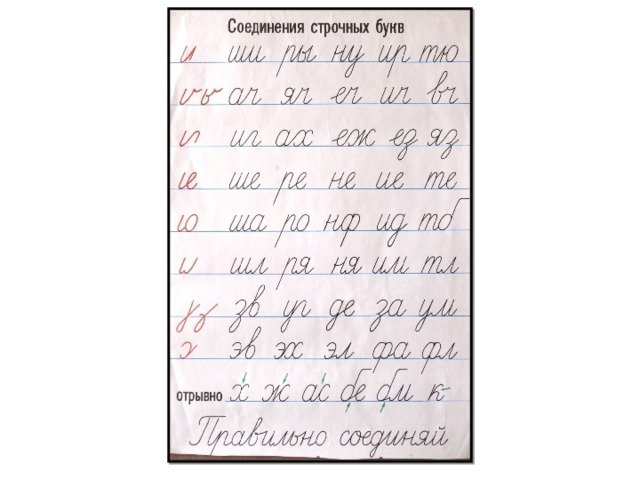 Соединения строчных букв
ши ры ну ир тю
ач яч еч ич вч
иг ах еж ез яз
ше ре не ие те
ша ро нф ид тб
шл ря ня им тл
зв уг де за ум
эв эх эл фа фл
отрывно х ж ас бе бм к
Правильно соединяй